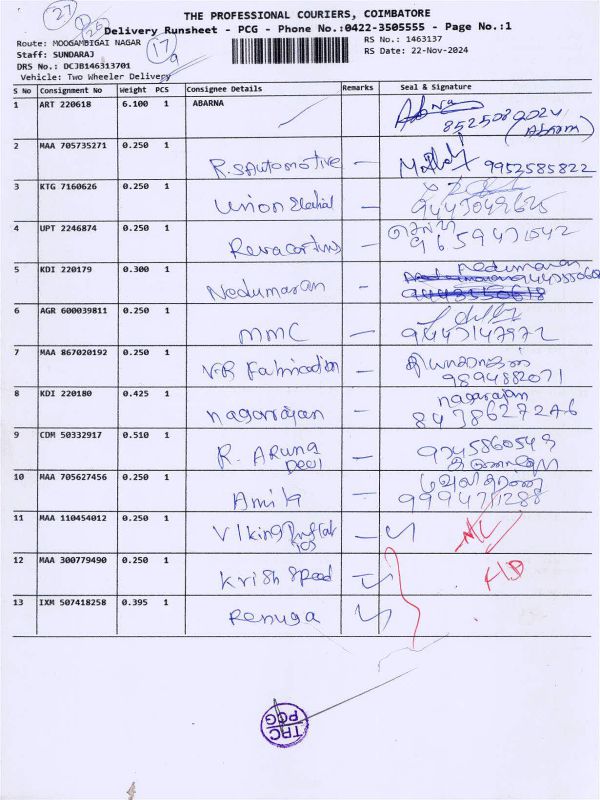 THE PROFESSIONAL COURIERS, COIMBATORE
Delivery Runsheet - PCG - Phone No.:0422-3505555 - Page No.:1
Route: MOOGAMBIGAI NAGAR
RS No.: 1463137
Staff: SUNDARAJ
RS Date: 22-Nov-2024
DRS No.: DCJB146313701
Vehicle: Two Wheeler Delivery
27
26
17
9
S No Consignment No Weight PCS Consignee Details Remarks Seal & Signature
1 ART 220618 6.100 1 ABARNA Abarna
8525089024
(ABARNA)
2 MAA 705735271 0.250 1 R.S Automotive — 9952585822
3 KTG 7160626 0.250 1 Union —
4 UPT 2246874 0.250 1 —
9659471542
5 KDI 220179 0.300 1 Nedumaran — Nedumaran
6 AGR 600039811 0.250 1 MMC —
9447147972
7 MAA 867020192 0.250 1 V.R Fabrication —
9894882071
8 KDI 220180 0.425 1 nagarajan — nagarajan
9 CDM 50332917 0.510 1 R. ARUNA
DEVI —
10 MAA 705627456 0.250 1 —
9994711288
11 MAA 110454012 0.250 1 Viking N/C
12 MAA 300779490 0.250 1 Krish Speed
13 IXM 507418258 0.395 1 Renuga
TPC
PCG